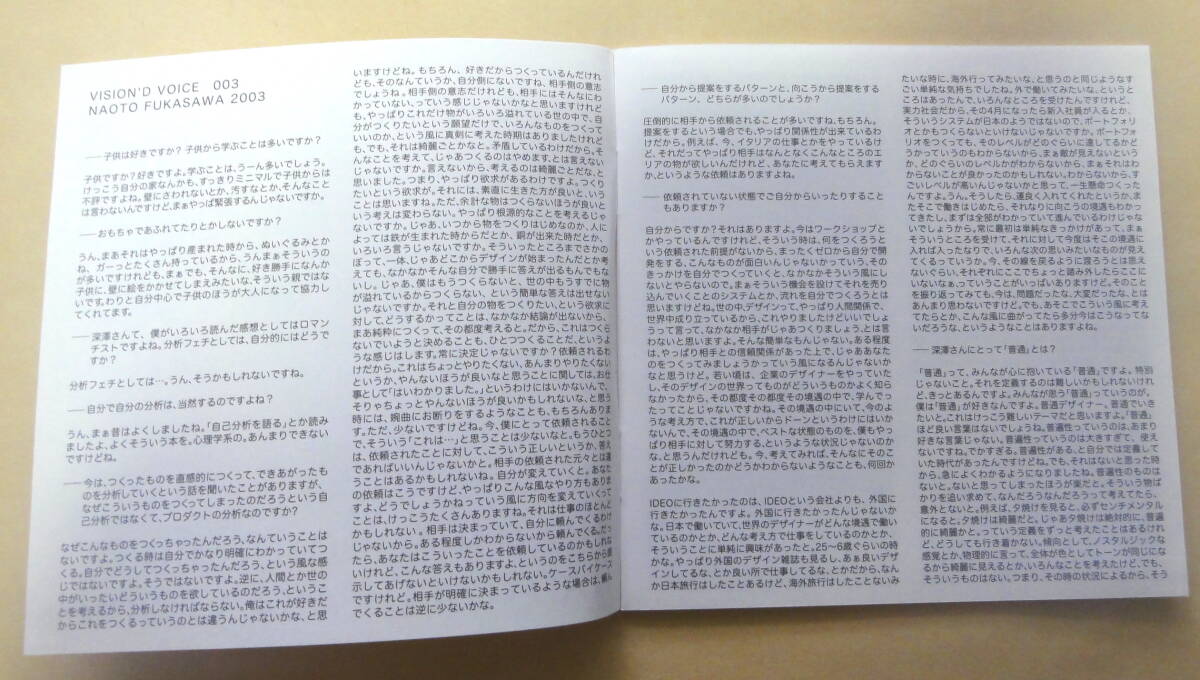 VISION'D VOICE 003
NAOTO FUKASAWA 2003
── 子供は好きですか? 子供から学ぶことは多いですか?
子供ですか? 好きですよ。学ぶことは、うーん多いでしょう。
けっこう自分の家なんかも、すっきりミニマルで子供からは
不評ですよね。壁にさわれないとか、汚すなとか、そんなこと
は言わないんですけど、まぁやっぱ緊張するんじゃないですか。
── おもちゃであふれてたりとかしないですか?
うん、まあそれはやっぱり産まれた時から、ぬいぐるみとか
ね、ガーっとたくさん持っているから、うんまぁそういうの
が多いですけれども、まぁでも、そんなに、好き勝手になんか
子供に、壁に絵をかかせてしまえみたいな、そういう親ではな
いです。わりと自分中心で子供のほうが大人になって協力し
てくれてます。
── 深澤さんて、僕がいろいろ読んだ感想としてはロマン
チストですよね。分析フェチとしては、自分的にはどうで
すか?
分析フェチとしては…。うん、そうかもしれないですね。
── 自分で自分の分析は、当然するのですよね?
うん、まぁ昔はよくしましたね。「自己分析を語る」とか読み
ましたよ、よくそういう本を。心理学系の。あんまりできない
ですけどね。
── 今は、つくったものを直感的につくって、できあがったも
のを分析していくという話を聞いたことがありますが、
なぜこういうものをつくってしまったのだろうという自
己分析ではなくて、プロダクトの分析なのですか?
なぜこんなものをつくっちゃったんだろう、なんていうことは
ないですよ。つくる時は自分でかなり明確にわかっていてつ
くる。自分でどうしてつくっちゃったんだろう、という風な感
じではないですよ。そうではないですよ。逆に、人間とか世の
中がいったいどういうものを欲しているのだろう、というこ
とを考えるから、分析しなければならない。俺はこれが好きだ
からこれをつくるっていうのとは違うんじゃないかな、と思
いますけどね。もちろん、好きだからつくっているんだけれ
ども、そのなんていうか、自分側にないですね、相手側の意志
でしょうね。相手側の意志だけれども、相手にはそんなにわ
かっていない、っていう感じじゃないかなと思いますけれど
も、やっぱりこれだけ物がいろいろ溢れている世の中で、自
分がつくりたいという願望だけで、いろんなものをつくって
いいのか、という風に真剣に考えた時期はありましたけれど
も、でも、それは綺麗ごとかなと。矛盾しているわけだから、そ
んなことを考えて、じゃあつくるのはやめます、とは言えない
じゃないですか。言えないから、考えるのは綺麗ごとだな、と
思いました。つまり、やっぱり欲求があるわけですよ。つくり
たいという欲求が。それには、素直に生きた方が良いと、いう
ことは思いますね。ただ、余計な物はつくらないほうが良いと
いう考えは変わらない。やっぱり根源的なことを考えるじゃ
ないですか。じゃあ、いつから物をつくりはじめなのか、人に
よっては鉄が生まれた時からだとか、銅が出来た時だとか、
いろいろ言うじゃないですか。そういったところまでさかの
ぼって、一体、じゃあどこからデザインが始まったんだとか考
えても、なかなかそんな自分で勝手に答えが出るもんでもな
いし。じゃあ、僕はもうつくらないと、世の中もうすでに物
が溢れているからつくらない、という簡単な答えは出せない
じゃないですか。それと自分の物をつくりたい、という欲求に
対して、どうするかってことは、なかなか結論が出ないから、
まあ純粋につくって、その都度考えると。だから、これはつくら
ないでいようと決めることも、ひとつつくることだ、というよ
うな感じはします。常に決定じゃないですか? 依頼されるわ
けだから。これはちょっとやりたくない、あんまりやりたくない
というか、やんないほうが良いなと思うことに関しては、お仕
事として「はいわかりました。」というわけにはいかないんで、
そりゃちょっとやんないほうが良いかもしれないな、と思う
時には、婉曲にお断りをするようなことも、もちろんありま
す。ただ、少ないですけどね。今、僕にとって依頼されること
で、そういう「これは…」と思うことは少ないなと。もうひとつ
は、依頼されたことに対して、こういう正しいというか、答え
であればいいんじゃないかと。相手の依頼された元々とは違う
ことはあるかもしれないね。自分が変えていくと。あなた
の依頼はこうですけど、やっぱりこんな風なやり方もありま
すよ、どうでしょうかねっていう風に方向を変えていくって
ことは、けっこうたくさんありますね。それは仕事のほとんど
かもしれない。相手は決まっていて、自分に頼んでくるわけ
じゃないから。ある程度しかわからないから頼んでくる。だっ
たら、あなたはこういったことを依頼しているのかもしれな
いけれど、こんな答えもありますよ、というのをこちらから提
示してあげないといけないかもしれない。ケースバイケース
ですけれど。相手が明確に決まっているような場合は、頼ん
でくることは逆に少ないかな。
── 自分から提案をするパターンと、向こうから提案をする
パターン、どちらが多いのでしょうか?
圧倒的に相手から依頼されることが多いですね、もちろん。
提案をするという場合でも、やっぱり関係性が出来ているわ
けだから。例えば、今、イタリアの仕事とかをやっているけ
ど、それだってやっぱり相手はなんとなくこんなところのエ
リアの物が欲しいんだけれど、あなたに考えてもらえます
か、というような依頼はありますよね。
── 依頼されていない状態でご自分からいったりすること
もありますか?
自分からですか? それはありますよ。今はワークショップと
かやっているんですけれど、そういう時は、何をつくろうと
いう依頼された前提がないから、まったくゼロから自分で開
発をする、こんなものが面白いんじゃないかっていう、その
きっかけを自分でつくっていくと、なかなかそういう風にし
ないとやらないので。まぁそういう機会を設けてそれを売り
込んでいくことのシステムとか、流れを自分でつくろうとは
思いますけどね。世の中、デザインって、やっぱり人間関係で、
世界中成り立っているから、これやりましたけどいいでしょ
うって言って、なかなか相手がじゃあつくりましょう、とは言
わないと思いますよ。そんな簡単なもんじゃない。ある程度
は、やっぱり相手との信頼関係があった上で、じゃああなた
のをつくってみましょうかっていう風になるんじゃないか
なと思うけど。若い頃は、企業のデザイナーをやっていた
し、そのデザインの世界ってものがどういうものかよく知ら
なかったから、その都度その都度その境遇の中で、学んでっ
たってことじゃないですかね。その境遇の中にいて、今のよ
うな考え方で、これが正しいからドーンというわけにはいか
ないんで、その境遇の中で、ベストな状態のものを、僕もやっ
ぱり相手に対して努力する、というような状況じゃないのか
な、と思うんだけれども。今、考えてみれば、そんなにそのこ
とが正しかったのかどうかわからないようなことも、何回か
あったかな。
IDEOに行きたかったのは、IDEOという会社よりも、外国に
行きたかったんですよ。外国に行きたかったんじゃないか
な。日本で働いていて、世界のデザイナーがどんな境遇で働い
ているのかとか、どんな考え方で仕事をしているのかとか、
そういうことに単純に興味があったと。25〜6歳ぐらいの時
かな。やっぱり外国のデザイン雑誌も見るし、あぁ良いデザ
インしてるな、とか良い所で仕事してるな、とかだから、なん
か日本旅行はしたことあるけど、海外旅行はしたことないみ
たいな時に、海外行ってみたいな、と思うのと同じようなす
ごい単純な気持ちでしたね。外で働いてみたいな、というと
ころはあったんで、いろんなところを受けたんですけれど、
実力社会だから、その4月になったら新入社員が入るとか、
そういうシステムが日本のようではないので、ポートフォリ
オとかもつくらないといけないじゃないですか。ポートフォ
リオをつくっても、そのレベルがどのぐらいに達してるかど
うかっていうのもわからないから、まぁ敵が見えないという
か、どのぐらいのレベルかがわからないから、まぁそれはわ
からないことが良かったのかもしれない。わからないから、す
ごいレベルが高いんじゃないかと思って、一生懸命つくった
んですよ、うん。そうしたら、運良く入れてくれたというか、ま
たそこで働きはじめたら、それなりに向こうの境遇もわかっ
てきたし、まずは全部がわかっていて進んでいるわけじゃな
いでしょうから。常に最初は単純なきっかけがあって、まぁ
そういうところを受けて、それに対して今度はその境遇に
入れば入ったなりで、いろんな次の思いみたいなものが見え
てくるっていうか。今、その線を戻るように渡ろうとは思え
ないぐらい、それぞれにここでちょっと踏み外したらここに
いないなぁ、っていうことがいっぱいありますけど。そのこと
を振り返ってみても、今は、問題だったな、大変だったな、とは
あんまり思わないですけど。でも、あそこでこういう風に考え
てたらとか、こんな風に曲がってたら多分今はこうなってな
いだろうな、というようなことはありますよね。
── 深澤さんにとって「普通」とは?
「普通」って、みんなが心に抱いている「普通」ですよ。特別
じゃないこと。それを定義するのは難しいかもしれないけれ
ど、きっとあるんですよ。みんなが思う「普通」っていうのが。
僕は「普通」が好きなんですよ。普通デザイナー。普通でいき
たいと。これはけっこう難しいテーマだと思いますよ。「普通」
ほど良い言葉はないでしょうね。普遍性っていうのは、あまり
好きな言葉じゃない。普遍性っていうのは大きすぎて、使え
ないですね。でかすぎる。普遍性がある、と自分では定義して
いた時代があったんですけどね。でも、それはないと思った時
から、急によくわかるようになりましたね。普遍性のものは
ないと。ないと思ってしまったほうが楽だと。そういう物ば
かりを追い求めて、なんだろうなんだろうって考えてたら、
意外とないと。例えば、夕焼けを見ると、必ずセンチメンタル
になると。夕焼けは綺麗だと。じゃあ夕焼けは絶対的に、普遍
的に綺麗かと。っていう定義をずっと考えたことはあるけれ
ど、どうしても行き着かない。傾向として、ノスタルジックな
感覚とか、物理的に言って、全体が色としてトーンが同じにな
るから綺麗に見えるとか、いろんなことを考えたけど、でも、
そういうものはない。つまり、その時の状況によるから、そう